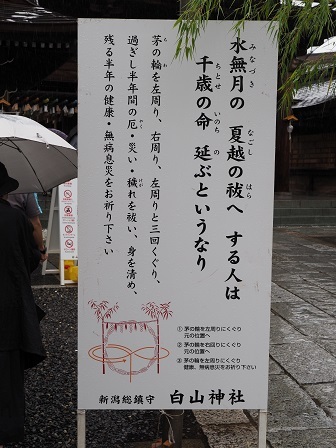 水無月の 夏越の祓へ する人は
千歳の命 延ぶというなり
茅の輪を左周り、右周り、左周りと三回くぐり、
過ぎし半年間の厄・災い・穢れを祓い、身を清め、
残る半年の健康・無病息災をお祈り下さい
①茅の輪を左周りにくぐり
元の位置へ
②茅の輪を右回りにくぐり
元の位置へ
③茅の輪を左周りにくぐり
健康、無病息災をお祈り下さい
新潟総鎮守 白山神社